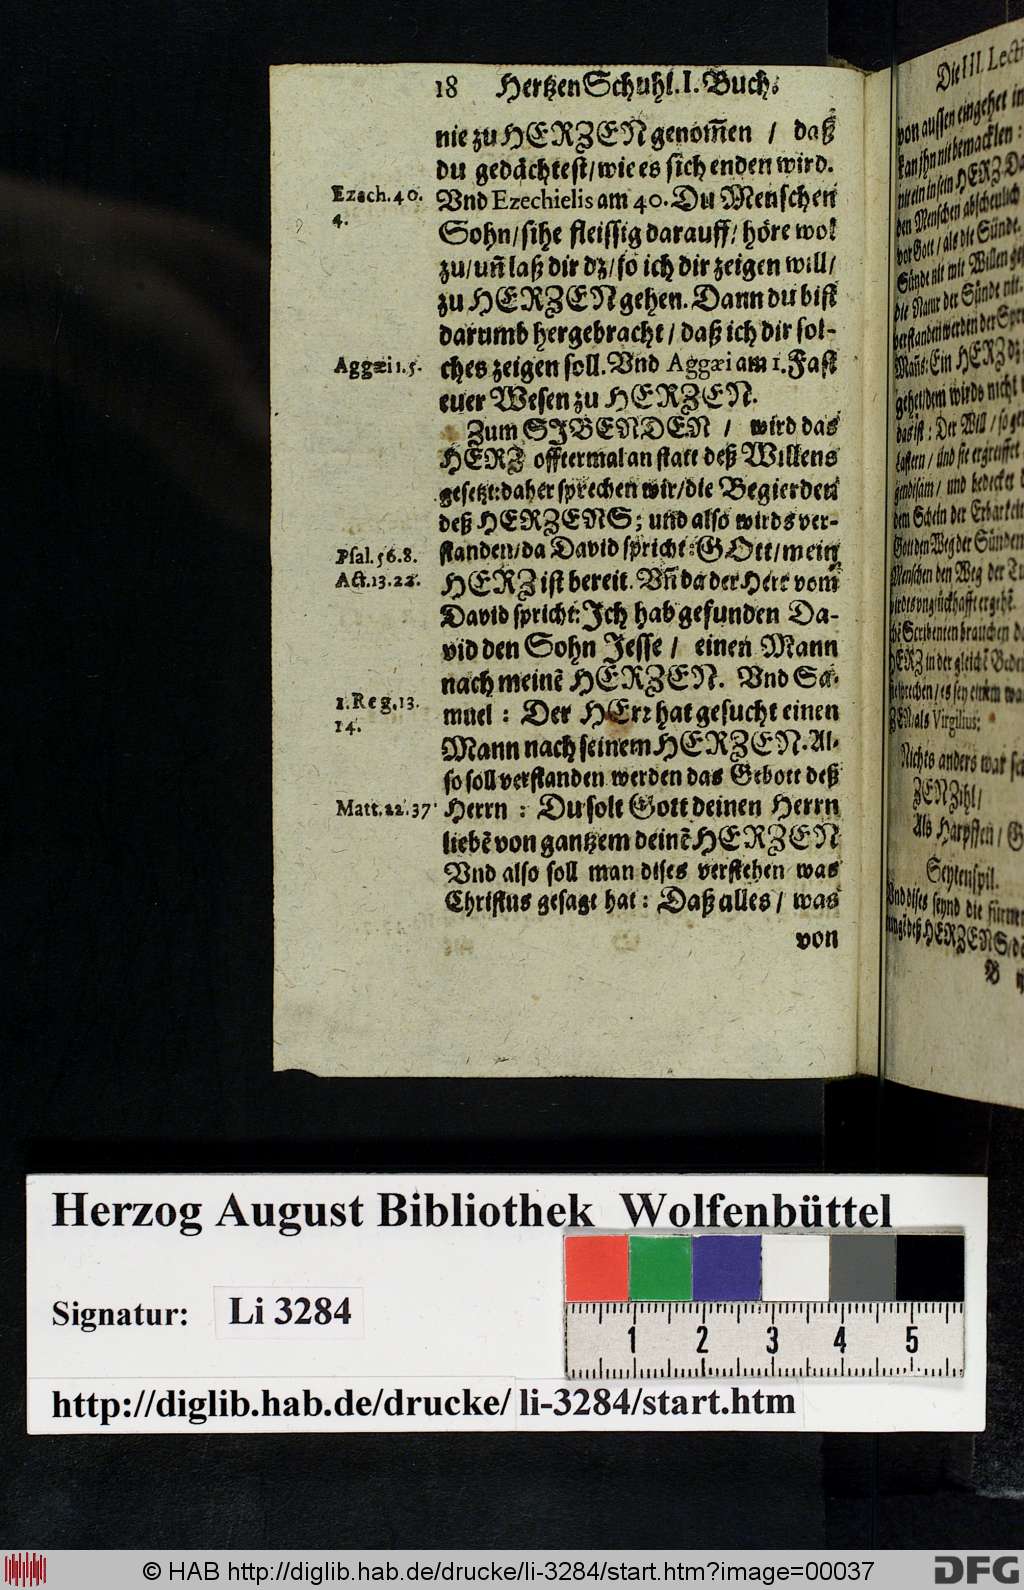 18 Hertzen Schuhl. I. Buch.
nie zu HERZEN genom̃en / daß
du gedächtest / wie es sich enden wird.
Ezech. 40. 4.
Vnd Ezechielis am 40. Du Menschen
Sohn / sihe fleissig darauff / höre wol
zu / uñ laß dir dz / so ich dir zeigen will /
zu HERZEN gehen. Dann du bist
darumb hergebracht / daß ich dir sol-
Aggæi 1. 5.
ches zeigen soll. Vnd Aggæi am 1. Fast
euer Wesen zu HERZEN.
Zum SIBENDEN / wird das
HERZ offtermal an statt deß Willens
gesetzt: daher sprechen wir / die Begierden
deß HERZENS; und also wirds ver-
Psal. 56. 8.
standen / da David spricht: GOtt / mein
Act. 13. 22.
HERZ ist bereit. Vñ da der Herr vom
David spricht: Ich hab gefunden Da-
vid den Sohn Jesse / einen Mann
nach meinẽ HERZEN. Vnd Sa-
1. Reg. 13. 14.
muel : Der HErr hat gesucht einen
Mann nach seinem HERZEN. Al-
so soll verstanden werden das Gebott deß
Matt. 22. 37
Herrn : Du solt Gott deinen Herrn
liebẽ von gantzem deinẽ HERZEN
Vnd also soll man dises verstehen was
Christus gesagt hat : Daß alles / was
von
Die III. Lect
von aussen eingehet in
kan jhn nit bemacklen :
nit ein in sein HERZ. Da
den Menschen abscheulich
vor Gott / als die Sünde.
Sünde nit mit Willen
die Natur der Sünde nit.
verstanden werden der Spr
Mañs: Ein HERZ dz
gehet / dem wirds nicht
das ist : Der Will / so
lastern / und sie ergreiffet
und bedecket
dem Schein der Erbarkeit
Gott den Weg der Sünden
Menschen den Weg der Tu
wird es unglückhafft ergehẽ.
Scribenten brauchen
HERZ in der gleichẽ
/ es sey einem
ZEN / als Virgilius:
Nichts anders war
ZEN Zihl /
Als Harpffen / G
Seytenspil.
Vnd dises seynd die
deß HERZENS /
B
Herzog August Bibliothek Wolfenbüttel
Signatur: Li 3284
1 2 3 4 5
http://diglib.hab.de/drucke/ li-3284/start.htm
© HAB http://diglib.hab.de/drucke/li-3284/start.htm?image=00037
DFG